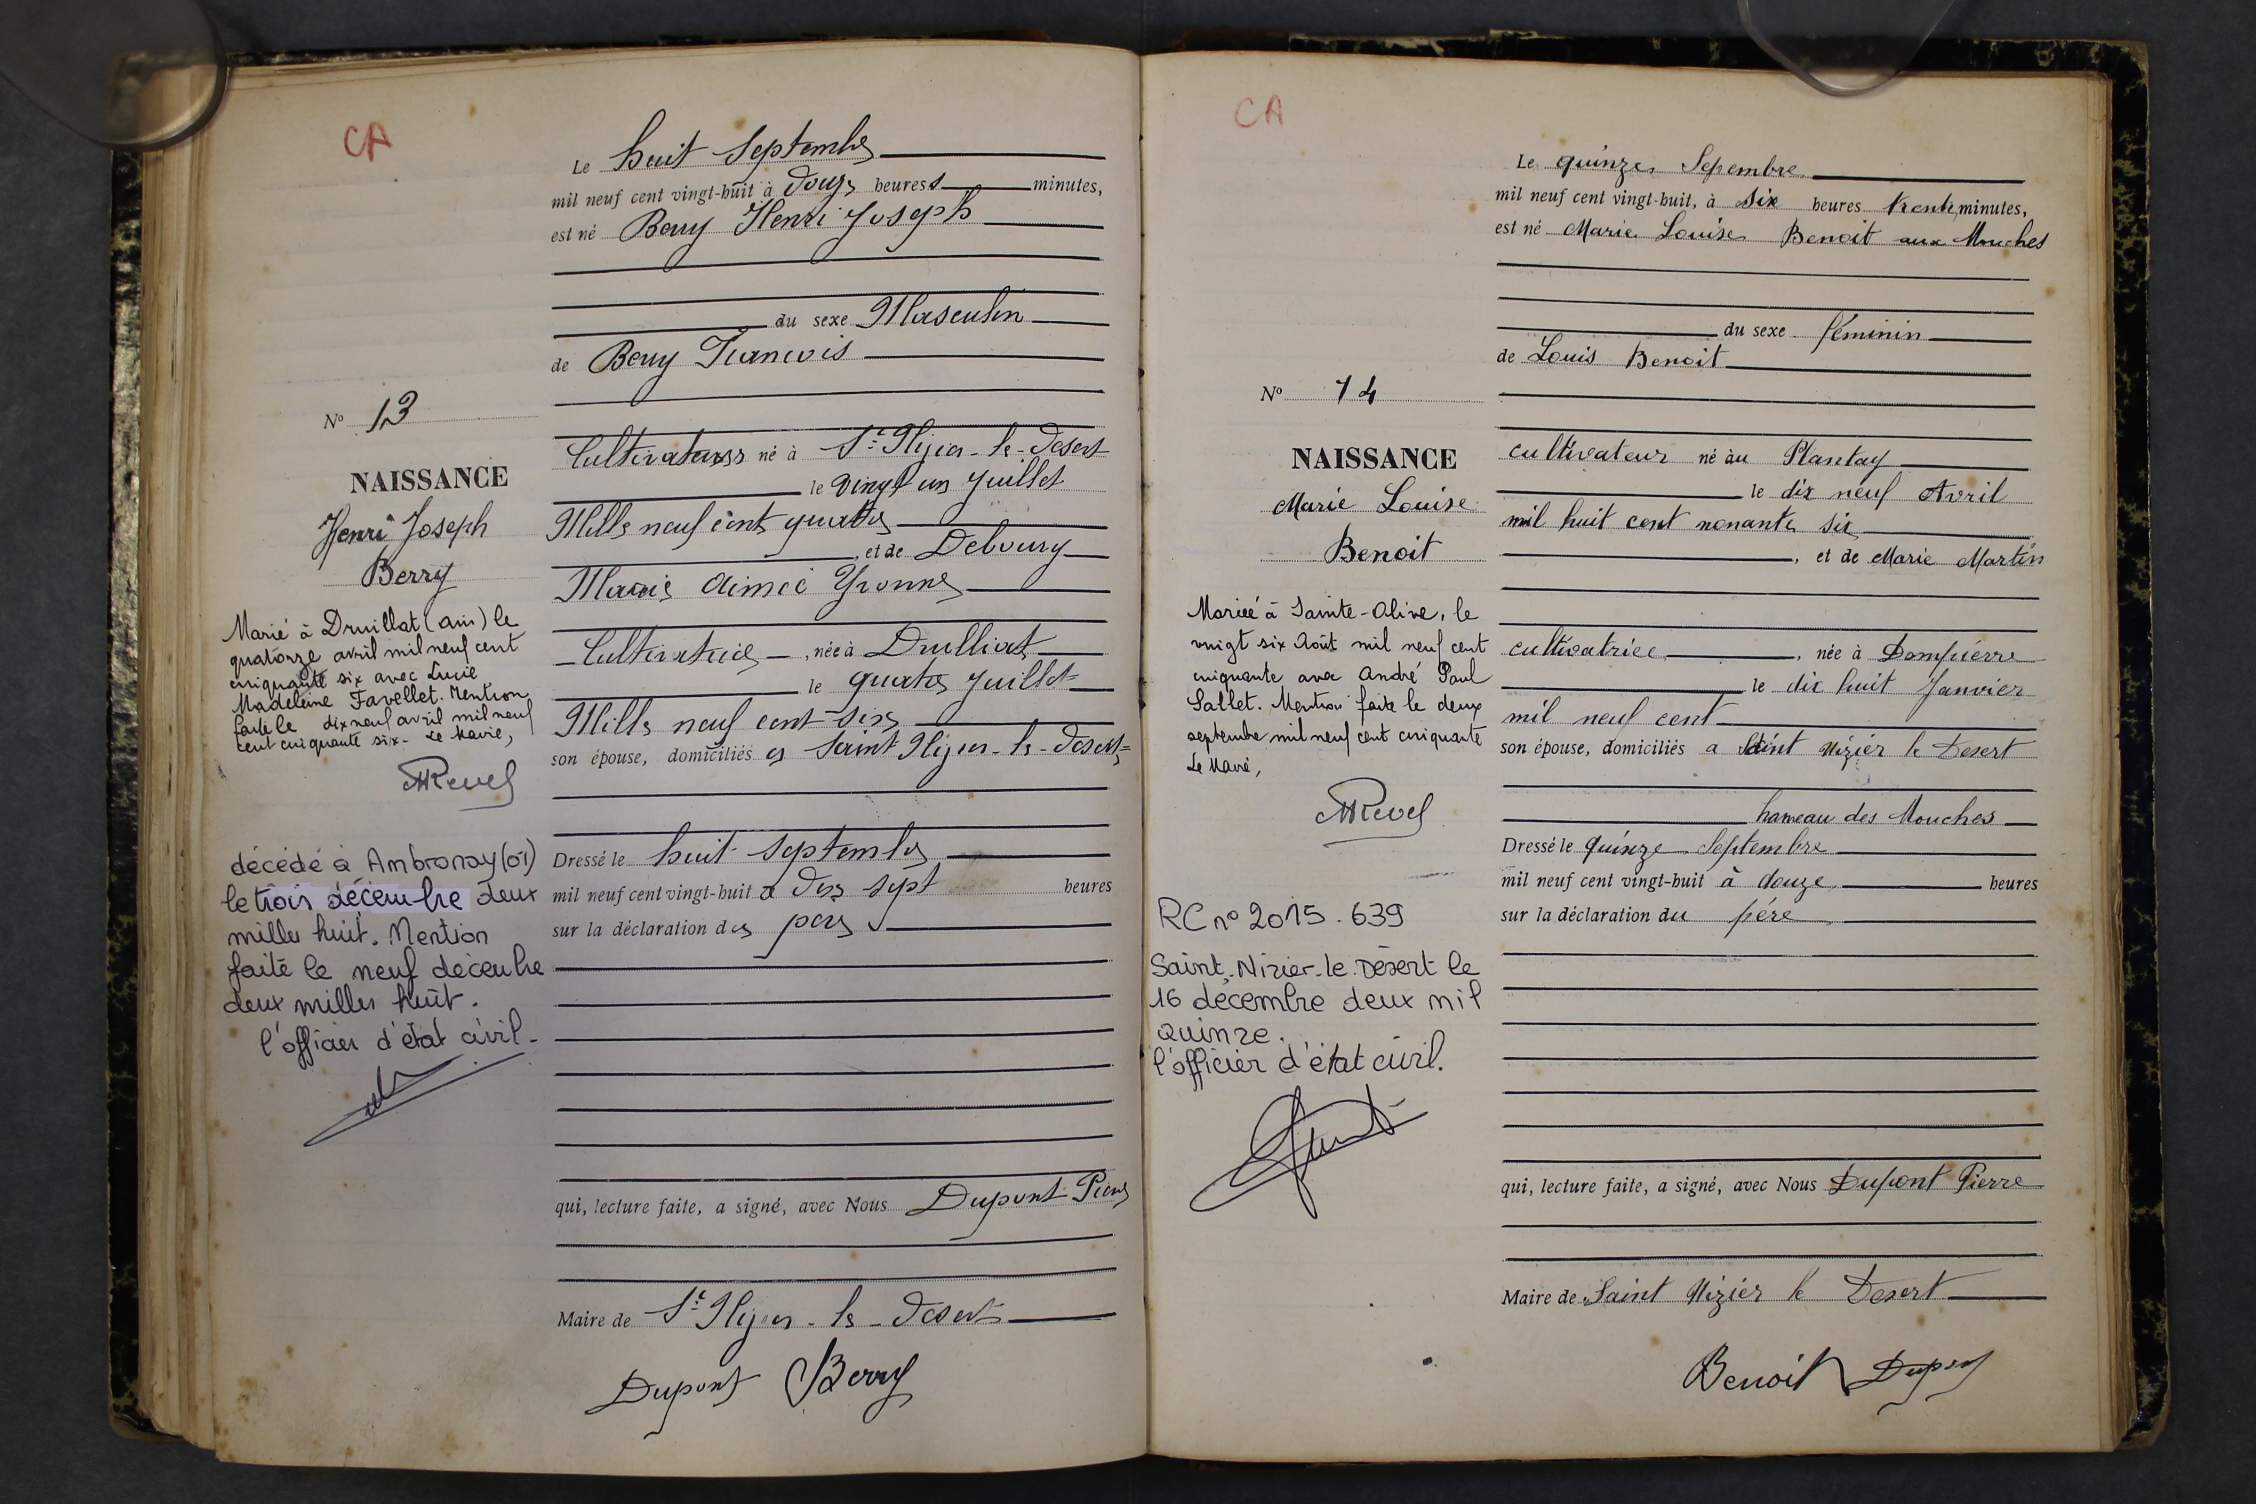 CA
Le huit Septembre
mil neuf cent vingt-huit à douze heures minutes,
est né Berry Henri Joseph
du sexe Masculin
de Berry Francois
N° 13
NAISSANCE
Henri Joseph
Berry
Cultivateur né à St Nizier-le-Desert
le vingt un Juillet
Mille neuf cent quatre
, et de Deboury
Marie Aimée Yvonne
Cultivatrice, née à Drulliat
le quatre Juillet
Mille neuf cent six
son épouse, domiciliés à Saint Nizier-le-Desert
Marié à Druillat (ain) le
quatorze avril mil neuf cent
cinquante six avec Lucie
Madeleine Favellet. Mention
faite le dix neuf avril mil neuf
cent cinquante six. Le Maire,
MRevel
décédé à Ambronay (01)
le trois décembre deux
mille huit. Mention
faite le neuf décembre
deux mille huit.
l'officier d'état civil.
Dressé le huit Septembre
mil neuf cent vingt-huit à dix sept heures
sur la déclaration du pere
qui, lecture faite, a signé, avec Nous Dupont Pierre
Maire de St Nizier-le-Desert
Dupont Berry
CA
Le quinze Sepembre
mil neuf cent vingt-huit, à six heures trente minutes,
est né Marie Louise Benoit aux Mouches
du sexe féminin
de Louis Benoit
N° 14
NAISSANCE
Marie Louise
Benoit
cultivateur né au Plantay
le dix neuf Avril
mil huit cent nonante six
, et de Marie Martin
cultivatrice, née à Dompierre
le dix huit Janvier
mil neuf cent
son épouse, domiciliés a Saint Nizier le Desert
hameau des Mouches
Mariée à Sainte-Olive, le
vingt six Août mil neuf cent
cinquante avec André Paul
Sallet. Mention faite le deux
septembre mil neuf cent cinquante
Le Maire,
MRevel
RC n° 2015.639
Saint-Nizier-le-Désert le
16 décembre deux mil
quinze.
l'officier d'état civil.
Dressé le quinze Septembre
mil neuf cent vingt-huit à douze heures
sur la déclaration du père
qui, lecture faite, a signé, avec Nous Dupont Pierre
Maire de Saint Nizier le Desert
Benoit Dupont